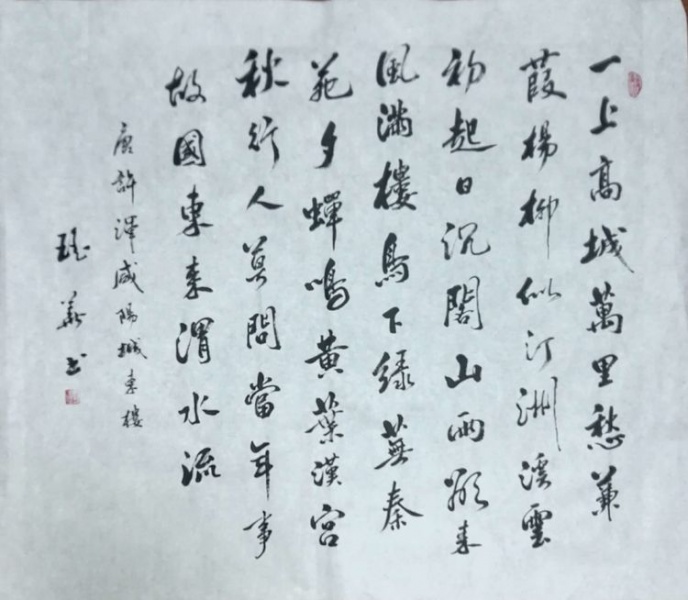 一上高城萬里愁蒹
葭楊柳似汀洲溪雲
初起日沉閣山雨欲来
風滿樓鳥下綠蕪秦
苑夕蟬鳴黃葉漢宮
秋行人莫問當年事
故國東来渭水流
唐許渾咸陽城東樓
華书